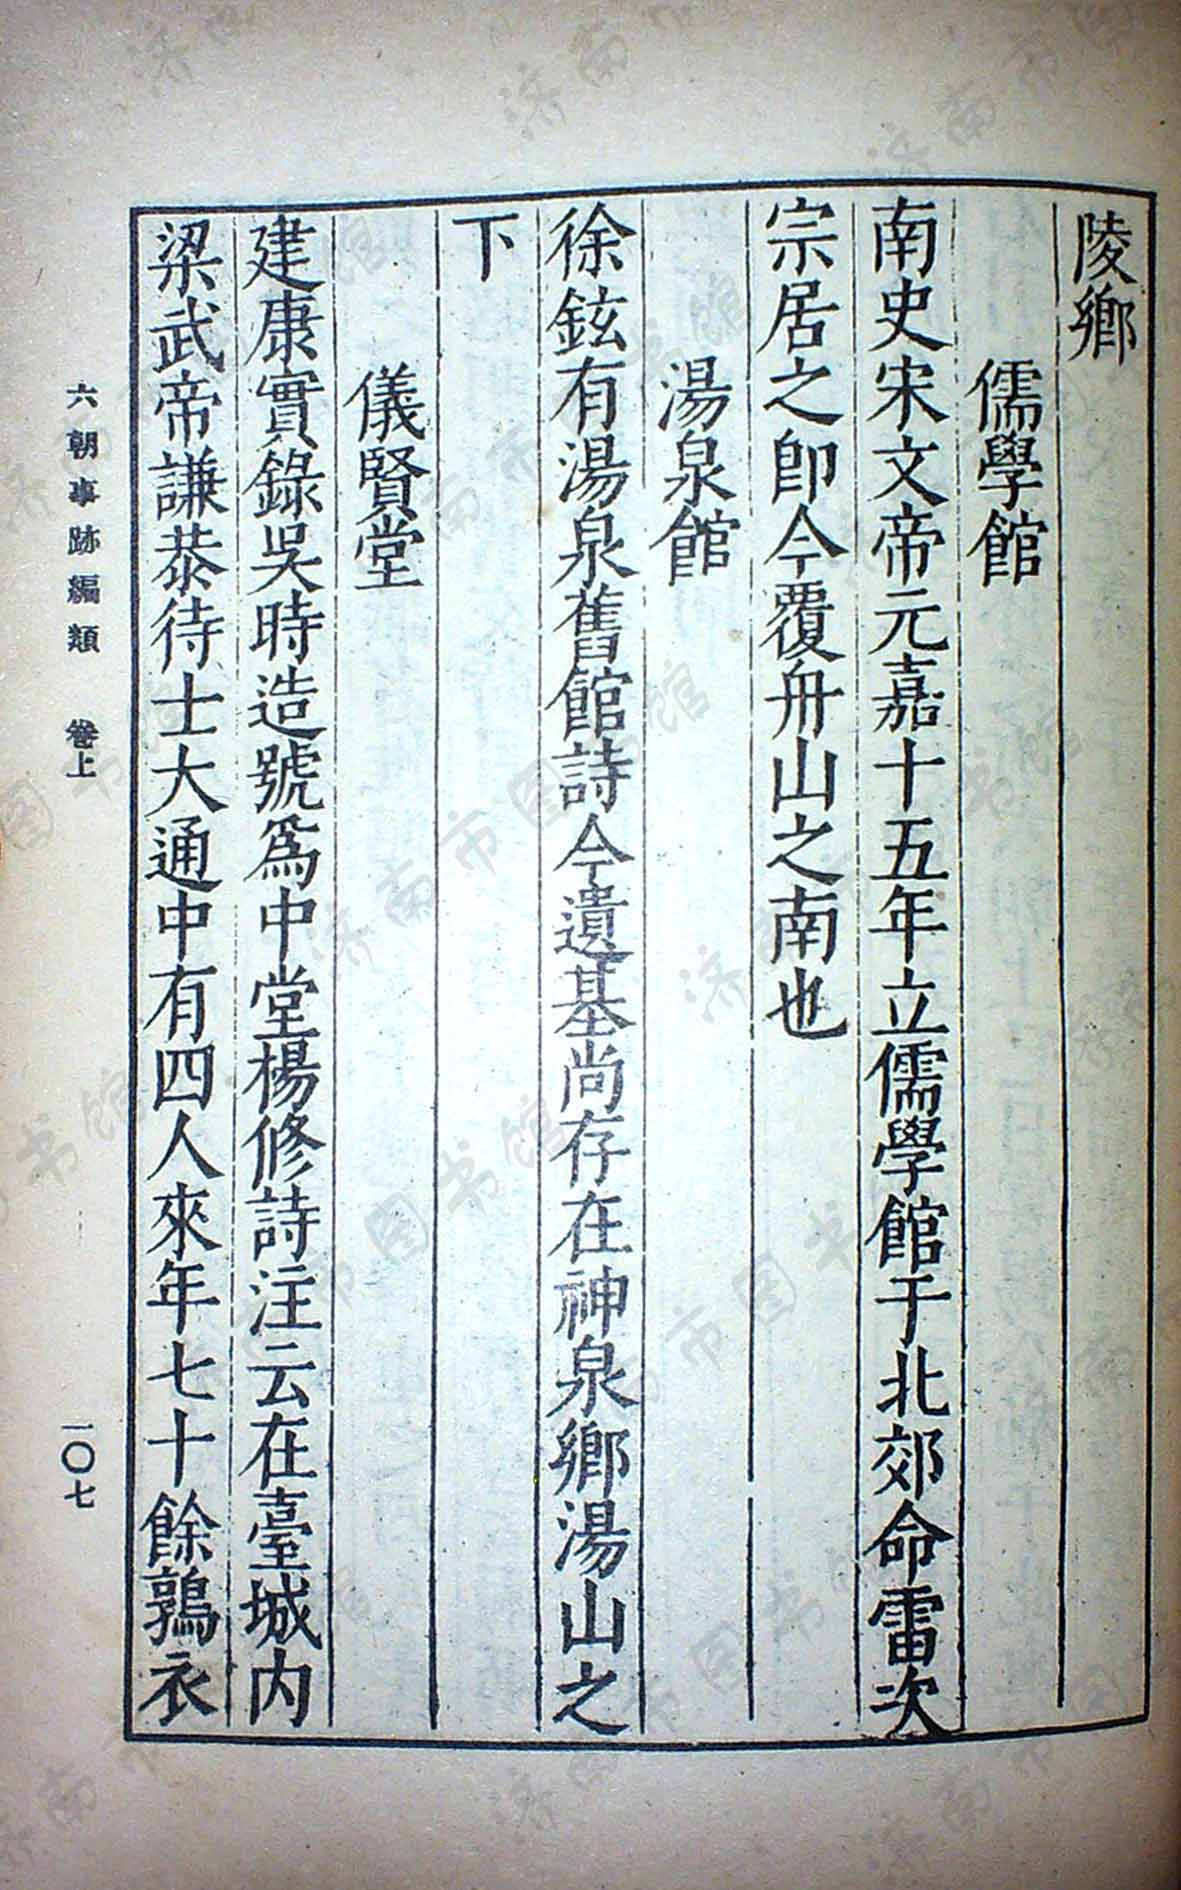 陵鄉
儒學館
南史宋文帝元嘉十五年立儒學館于北郊命雷次
宗居之即今覆舟山之南也
湯泉館
徐鉉有湯泉舊館詩今遺基尚存在神泉鄉湯山之
下
儀賢堂
建康實錄吳時造號爲中堂楊修詩注云在臺城内
梁武帝謙恭待士大通中有四人來年七十餘鶉衣
六朝事跡編類 卷上
一〇七
济南市图书馆